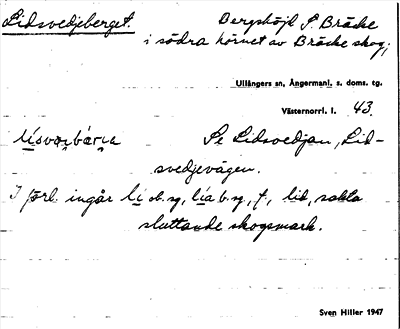 Lidsvedjeberget. Bergshöjd S. Bräcke
i södra hörnet av Bräcke skog,
Ullångers sn, Ångermanl. s. doms. tg.
Västernorrl. l. 43.
Se Lidsvedjan, Lid-
svedjevägen.
I förl. ingår lí ob. sg, lía b. sg, f., lid, sakta
sluttande skogsmark.
Sven Hiller 1947